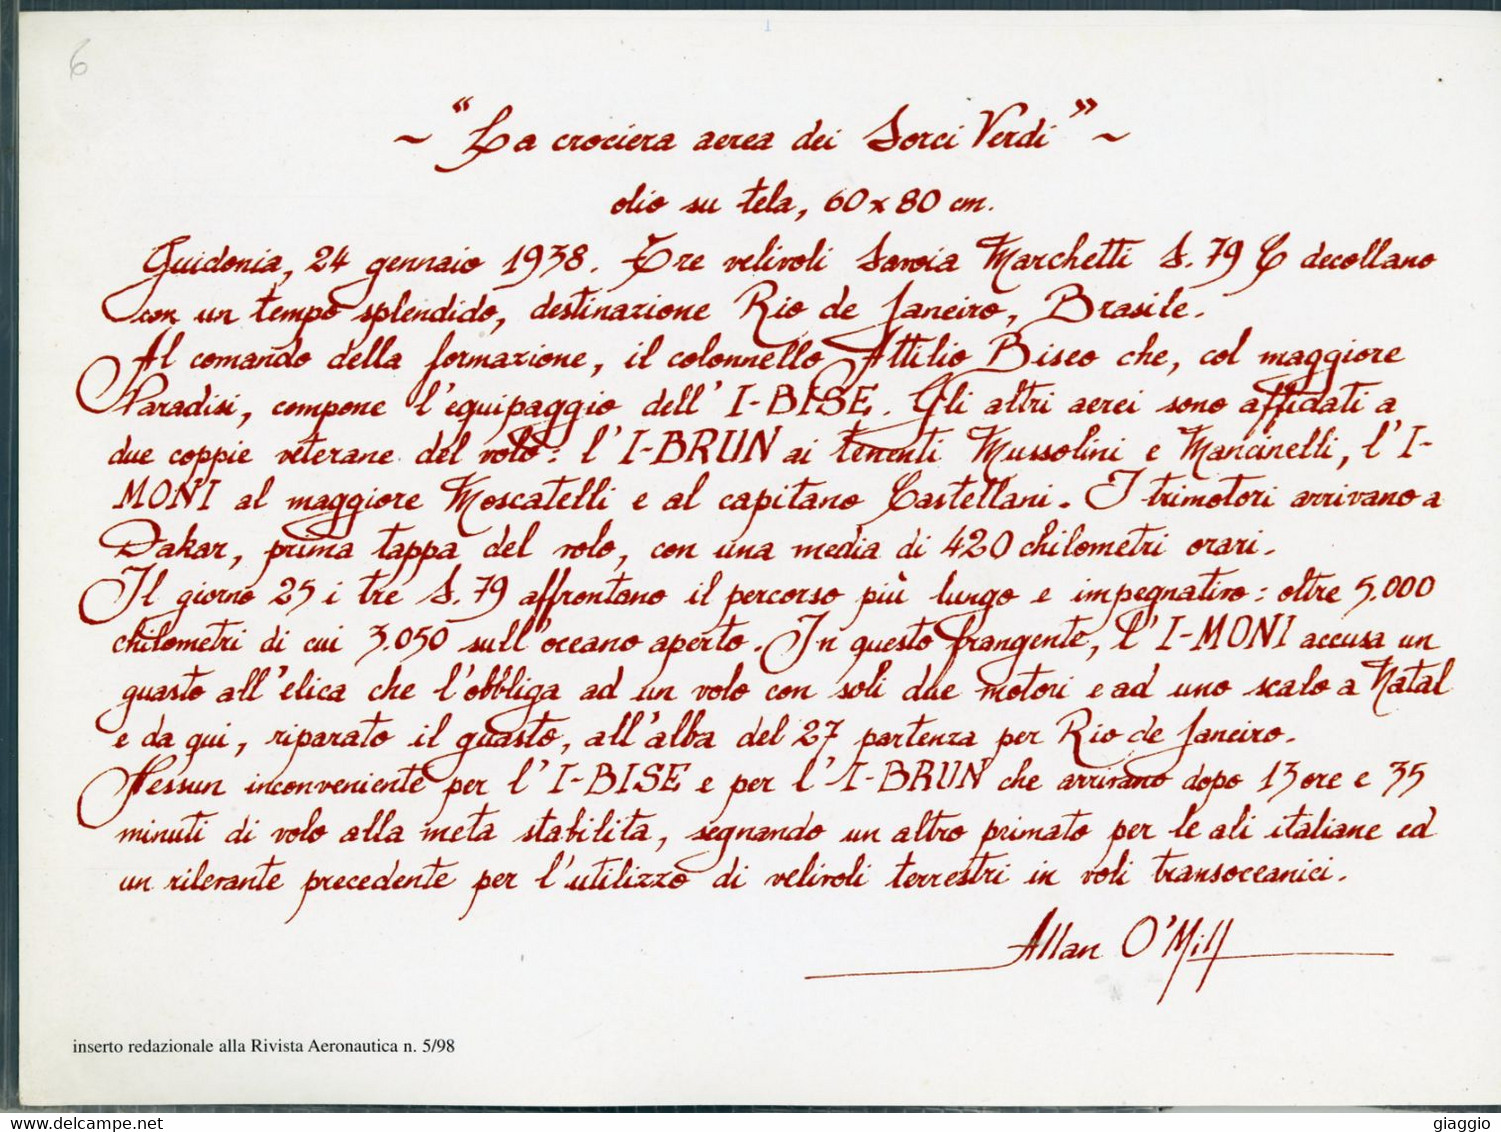 6
~ "La crociera aerea dei Sorci Verdi" ~
olio su tela, 60 x 80 cm.
Guidonia, 24 gennaio 1938. Tre velivoli Savoia Marchetti S. 79 C decollano
con un tempo splendido, destinazione Rio de Janeiro, Brasile.
Al comando della formazione, il colonnello Attilio Biseo che, col maggiore
Paradisi, compone l'equipaggio dell' I-BISE. Gli altri aerei sono affidati a
due coppie veterane del volo: l' I-BRUN ai tenenti Mussolini e Mancinelli, l' I-
MONI al maggiore Moscatelli e al capitano Castellani. I trimotori arrivano a
Dakar, prima tappa del volo, con una media di 420 chilometri orari.
Il giorno 25 i tre S. 79 affrontano il percorso più lungo e impegnativo: oltre 5.000
chilometri di cui 3.050 sull'oceano aperto. In questo frangente, l' I-MONI accusa un
guasto all'elica che l'obbliga ad un volo con soli due motori e ad uno scalo a Natal
e da qui, riparato il guasto, all'alba del 27 partenza per Rio de Janeiro.
Nessun inconveniente per l' I-BISE e per l' I-BRUN che arrivano dopo 13 ore e 35
minuti di volo alla meta stabilita, segnando un altro primato per le ali italiane ed
un rilevante precedente per l'utilizzo di velivoli terrestri in voli transoceanici.
Allan O'Mill
inserto redazionale alla Rivista Aeronautica n. 5/98
www.delcampe.net
giaggio